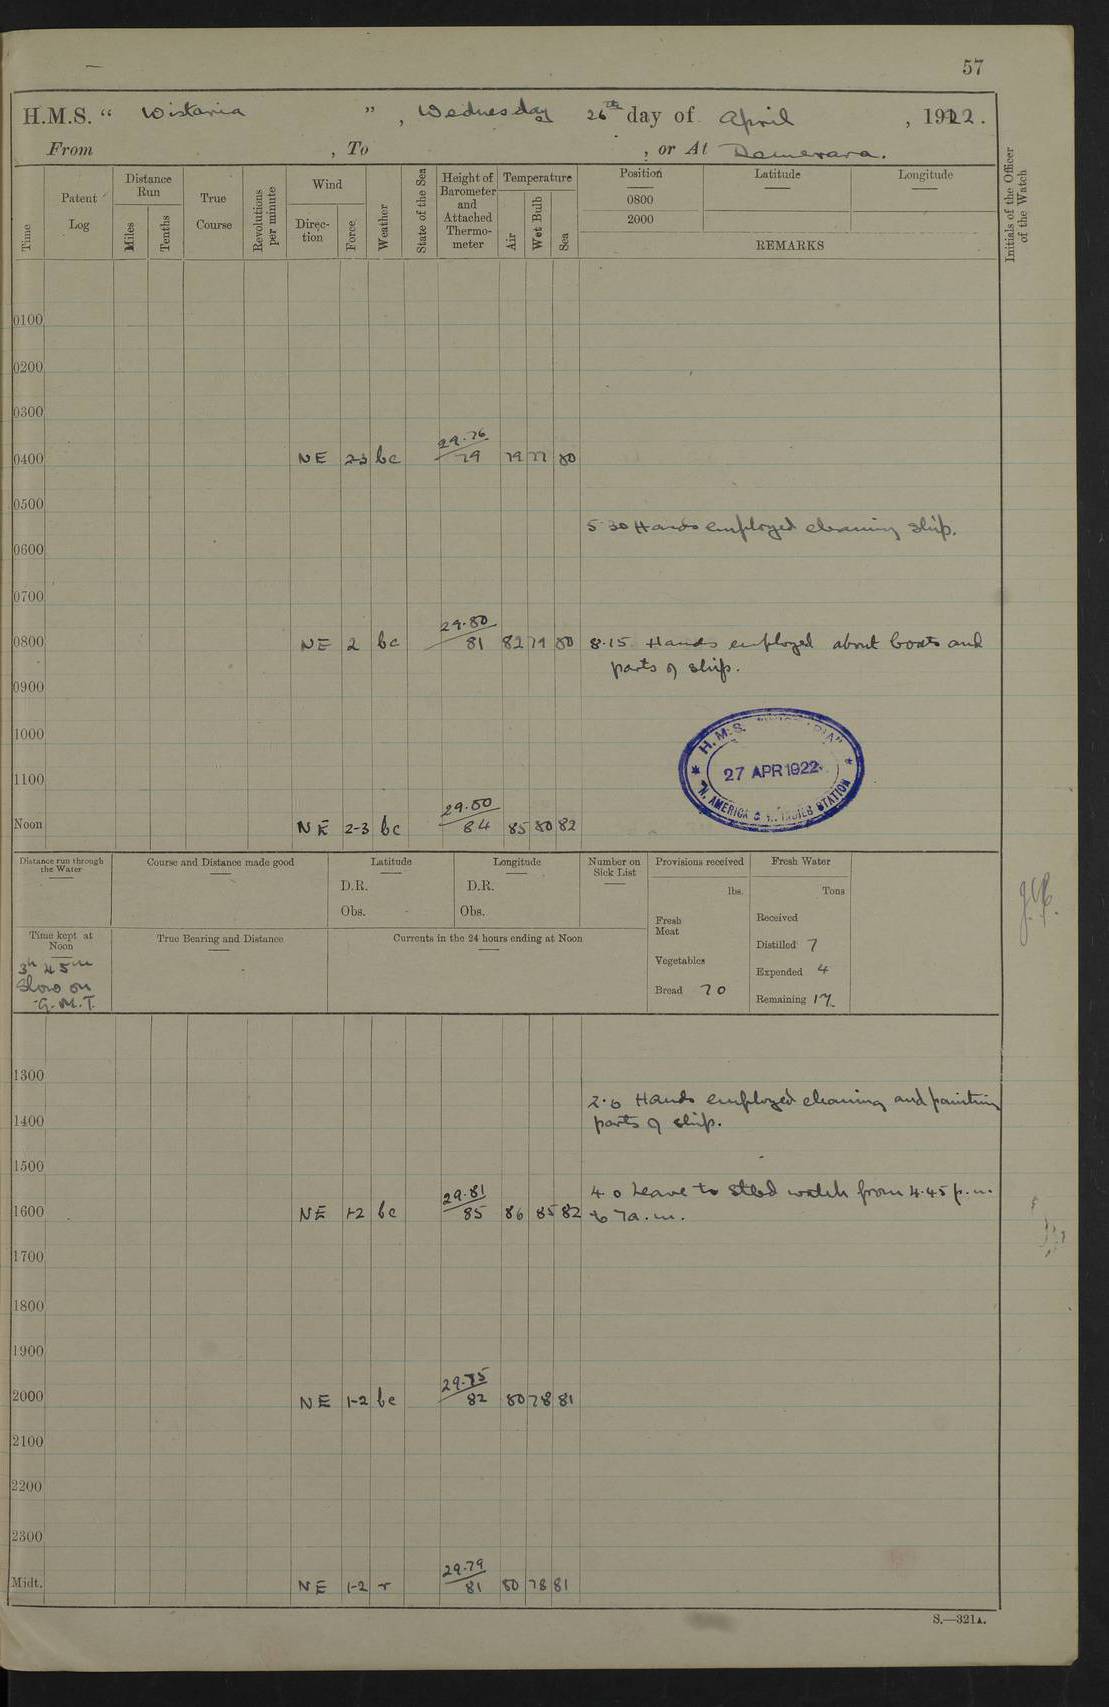 57
H.M.S. “ Wistaria ” , Wednesday 26th day of April , 1922.
From , To , or At Demerara.
Time
Patent Log
Distance Run
Miles
Tenths
True Course
Revolutions per minute
Wind
Direction
Force
Weather
State of the Sea
Height of Barometer and Attached Thermometer
Temperature
Air
Wet Bulb
Sea
Position
0800
2000
Latitude
Longitude
REMARKS
Initials of the Officer of the Watch
0100
0200
0300
29.76
0400 NE 2-3 bc 79 79 77 80
0500
5 30 Hands employed cleaning ship.
0600
0700
29.80
0800 NE 2 bc 81 82 79 80 8.15 Hands employed about boats and
parts of ship.
0900
1000
H.M.S.
27 APR 1922
N. AMERICA & W. INDIES STATION
1100
29.80
Noon NE 2-3 bc 84 85 80 82
Distance run through the Water
Course and Distance made good
Latitude
D.R.
Obs.
Longitude
D.R.
Obs.
Number on Sick List
Provisions received
lbs.
Fresh Meat
Vegetables
Bread 70
Fresh Water
Tons
Received
Distilled 7
Expended 4
Remaining 17
Time kept at Noon
3h 45m
Slow on
G.M.T.
True Bearing and Distance
Currents in the 24 hours ending at Noon
1300
2.0 Hands employed cleaning and painting
1400 parts of ship.
1500
29.81
4 0 Leave to stbd watch from 4.45 p.m.
1600 NE 1-2 bc 85 86 85 82 to 7a.m.
1700
1800
1900
29.75
2000 NE 1-2 bc 82 80 78 81
2100
2200
2300
29.79
Midt. NE 1-2 r 81 80 78 81
S.—321A.